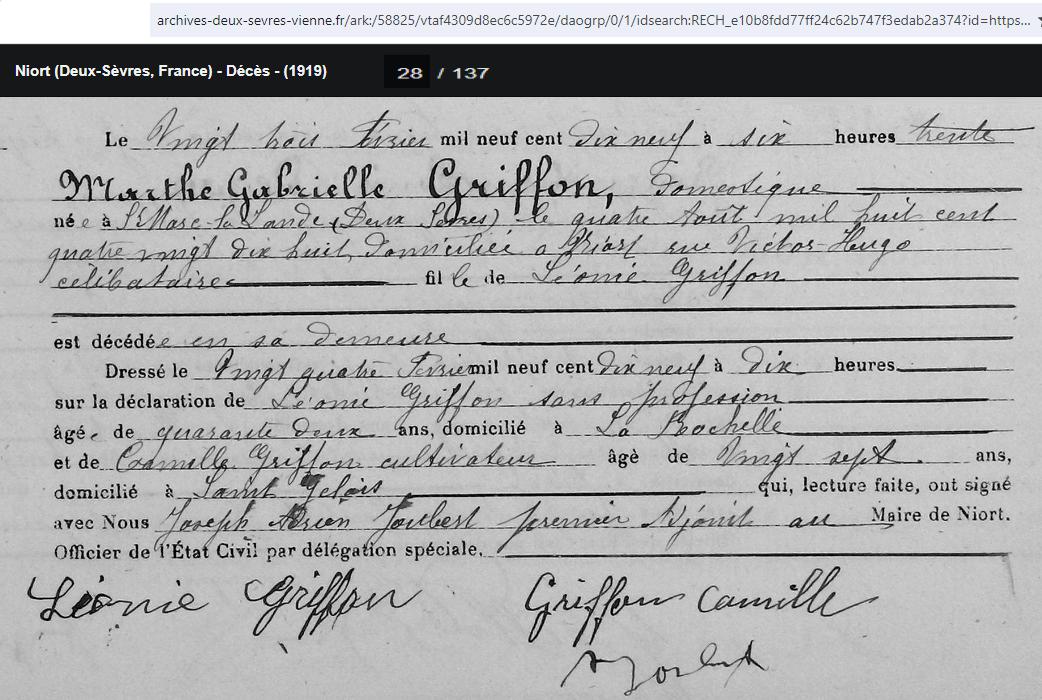 archives-deux-sevres-vienne.fr/ark:/58825/vtaf4309d8ec6c5972e/daogrp/0/1/idsearch:RECH_e10b8fdd77ff24c62b747f3edab2a374?id=https...
Niort (Deux-Sèvres, France) - Décès - (1919) 28 / 137
Le Vingt trois Février mil neuf cent dix neuf à six heures trente
Marthe Gabrielle Griffon, Domestique
née à St Marc-la-Lande (Deux Sèvres) le quatre Août mil huit cent
quatre vingt dix huit, domiciliée à Niort rue Victor-Hugo
célibataire fille de Léonie Griffon
est décédée en sa demeure
Dressé le Vingt quatre Février mil neuf cent dix neuf à dix heures
sur la déclaration de Léonie Griffon sans profession
âgée de quarante deux ans, domicilié à La Rochelle
et de Camille Griffon cultivateur âgè de Vingt sept ans,
domicilié à Saint Gelais qui, lecture faite, ont signé
avec Nous Joseph Adrien Joubert premier Adjoint au Maire de Niort.
Officier de l'État Civil par délégation spéciale.
Léonie Griffon Griffon Camille
A Joubert